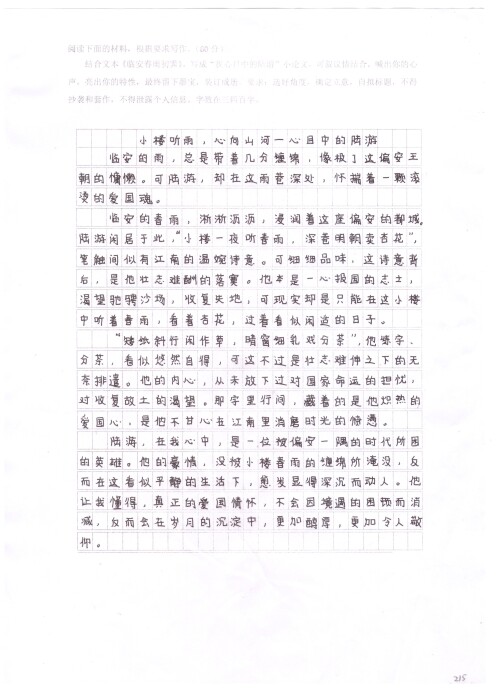 阅读下面的材料，根据要求写作。（60分）
结合文本《临安春雨初霁》，写成“我心目中的陆游”小论文，可叙议相结合，喊出你的心
抄袭和套作，不得泄露个人信息，字数在三四百字。
小楼听雨，心向山河—心目中的陆游
临安的雨，总是带着几分缠绵，像极了这偏安王
朝的慵懒。可陆游，却在这雨巷深处，怀揣着一颗滚
烫的爱国魂。
临安的春雨，淅淅沥沥，浸润着这座偏安的都城。
陆游闲居于此，“小楼一夜听春雨，深巷明朝卖杏花”，
笔触间似有江南的温婉诗意。可细细品味，这诗意背
后，是他壮志难酬的落寞。他本是一心报国的志士，
渴望驰骋沙场，收复失地，可现实却是只能在这小楼
中听着春雨，看着杏花，过着看似闲适的日子。
“矮纸斜行闲作草，晴窗细乳戏分茶”，他练字、
分茶，看似悠然自得，可这不过是壮志难伸之下的无
奈排遣。他的内心，从未放下过对国家命运的担忧，
对收复故土的渴望。那字里行间，藏着的是他炽热的
爱国心，是他不甘心在江南里消磨时光的倔强。
陆游，在我心中，是一位被偏安一隅的时代所困
的英雄。他的豪情，没被小楼春雨的缠绵所淹没，反
而在这看似平静的生活下，愈发显得深沉而动人。他
让我懂得，真正的爱国情怀，不会因境遇的困顿而消
减，反而会在岁月的沉淀中，更加醇厚，更加令人敬
仰。
215